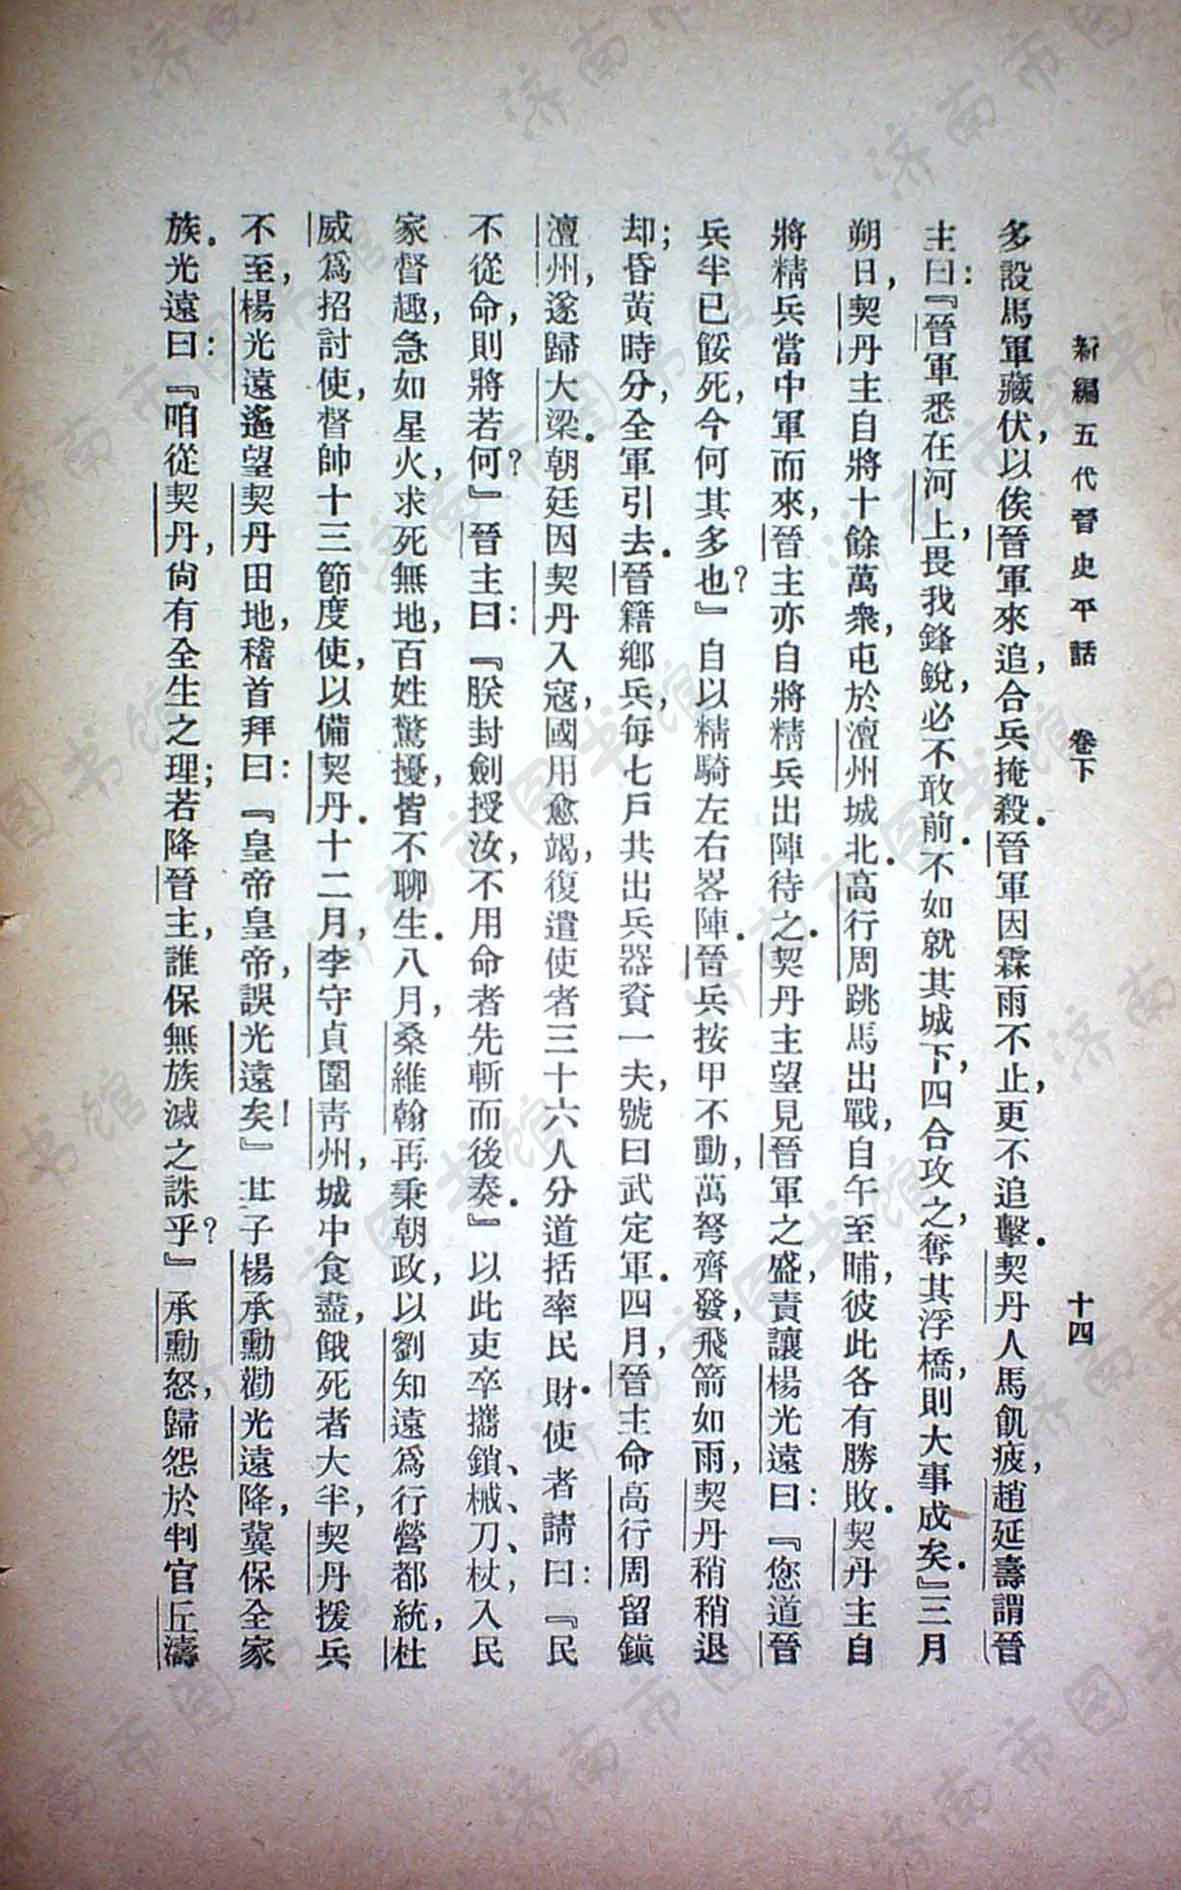 新編五代晉史平話　卷下　十四
多設馬軍藏伏，以俟晉軍來追，合兵掩殺。晉軍因霖雨不止，更不追擊。契丹人馬飢疲，趙延壽謂晉
主曰：『晉軍悉在河上，畏我鋒銳，必不敢前。不如就其城下，四合攻之，奪其浮橋，則大事成矣。』三月
朔日，契丹主自將十餘萬衆，屯於澶州城北。高行周跳馬出戰，自午至晡，彼此各有勝敗。契丹主自
將精兵當中軍而來，晉主亦自將精兵出陣待之。契丹主望見晉軍之盛，責讓楊光遠曰：『您道晉
兵半已餒死，今何其多也？』自以精騎左右畧陣。晉兵按甲不動，萬弩齊發，飛箭如雨，契丹稍稍退
却；昏黃時分，全軍引去。晉籍鄉兵，每七戶共出兵器資一夫，號曰武定軍。四月，晉主命高行周留鎭
澶州，遂歸大梁。朝廷因契丹入寇，國用愈竭，復遣使者三十六人分道括率民財。使者請曰：『民
不從命，則將若何？』晉主曰：『朕封劍授汝，不用命者先斬而後奏。』以此吏卒攜鎖、械、刀、杖，入民
家督趣，急如星火，求死無地，百姓驚擾，皆不聊生。八月，桑維翰再秉朝政，以劉知遠爲行營都統，杜
威爲招討使，督帥十三節度使，以備契丹。十二月，李守貞圍靑州，城中食盡，餓死者大半，契丹援兵
不至，楊光遠遙望契丹田地，稽首拜曰：『皇帝皇帝，誤光遠矣！』其子楊承勳勸光遠降，冀保全家
族。光遠曰：『咱從契丹，尙有全生之理；若降晉主，誰保無族滅之誅乎？』承勳怒，歸怨於判官丘濤
济南市图书馆